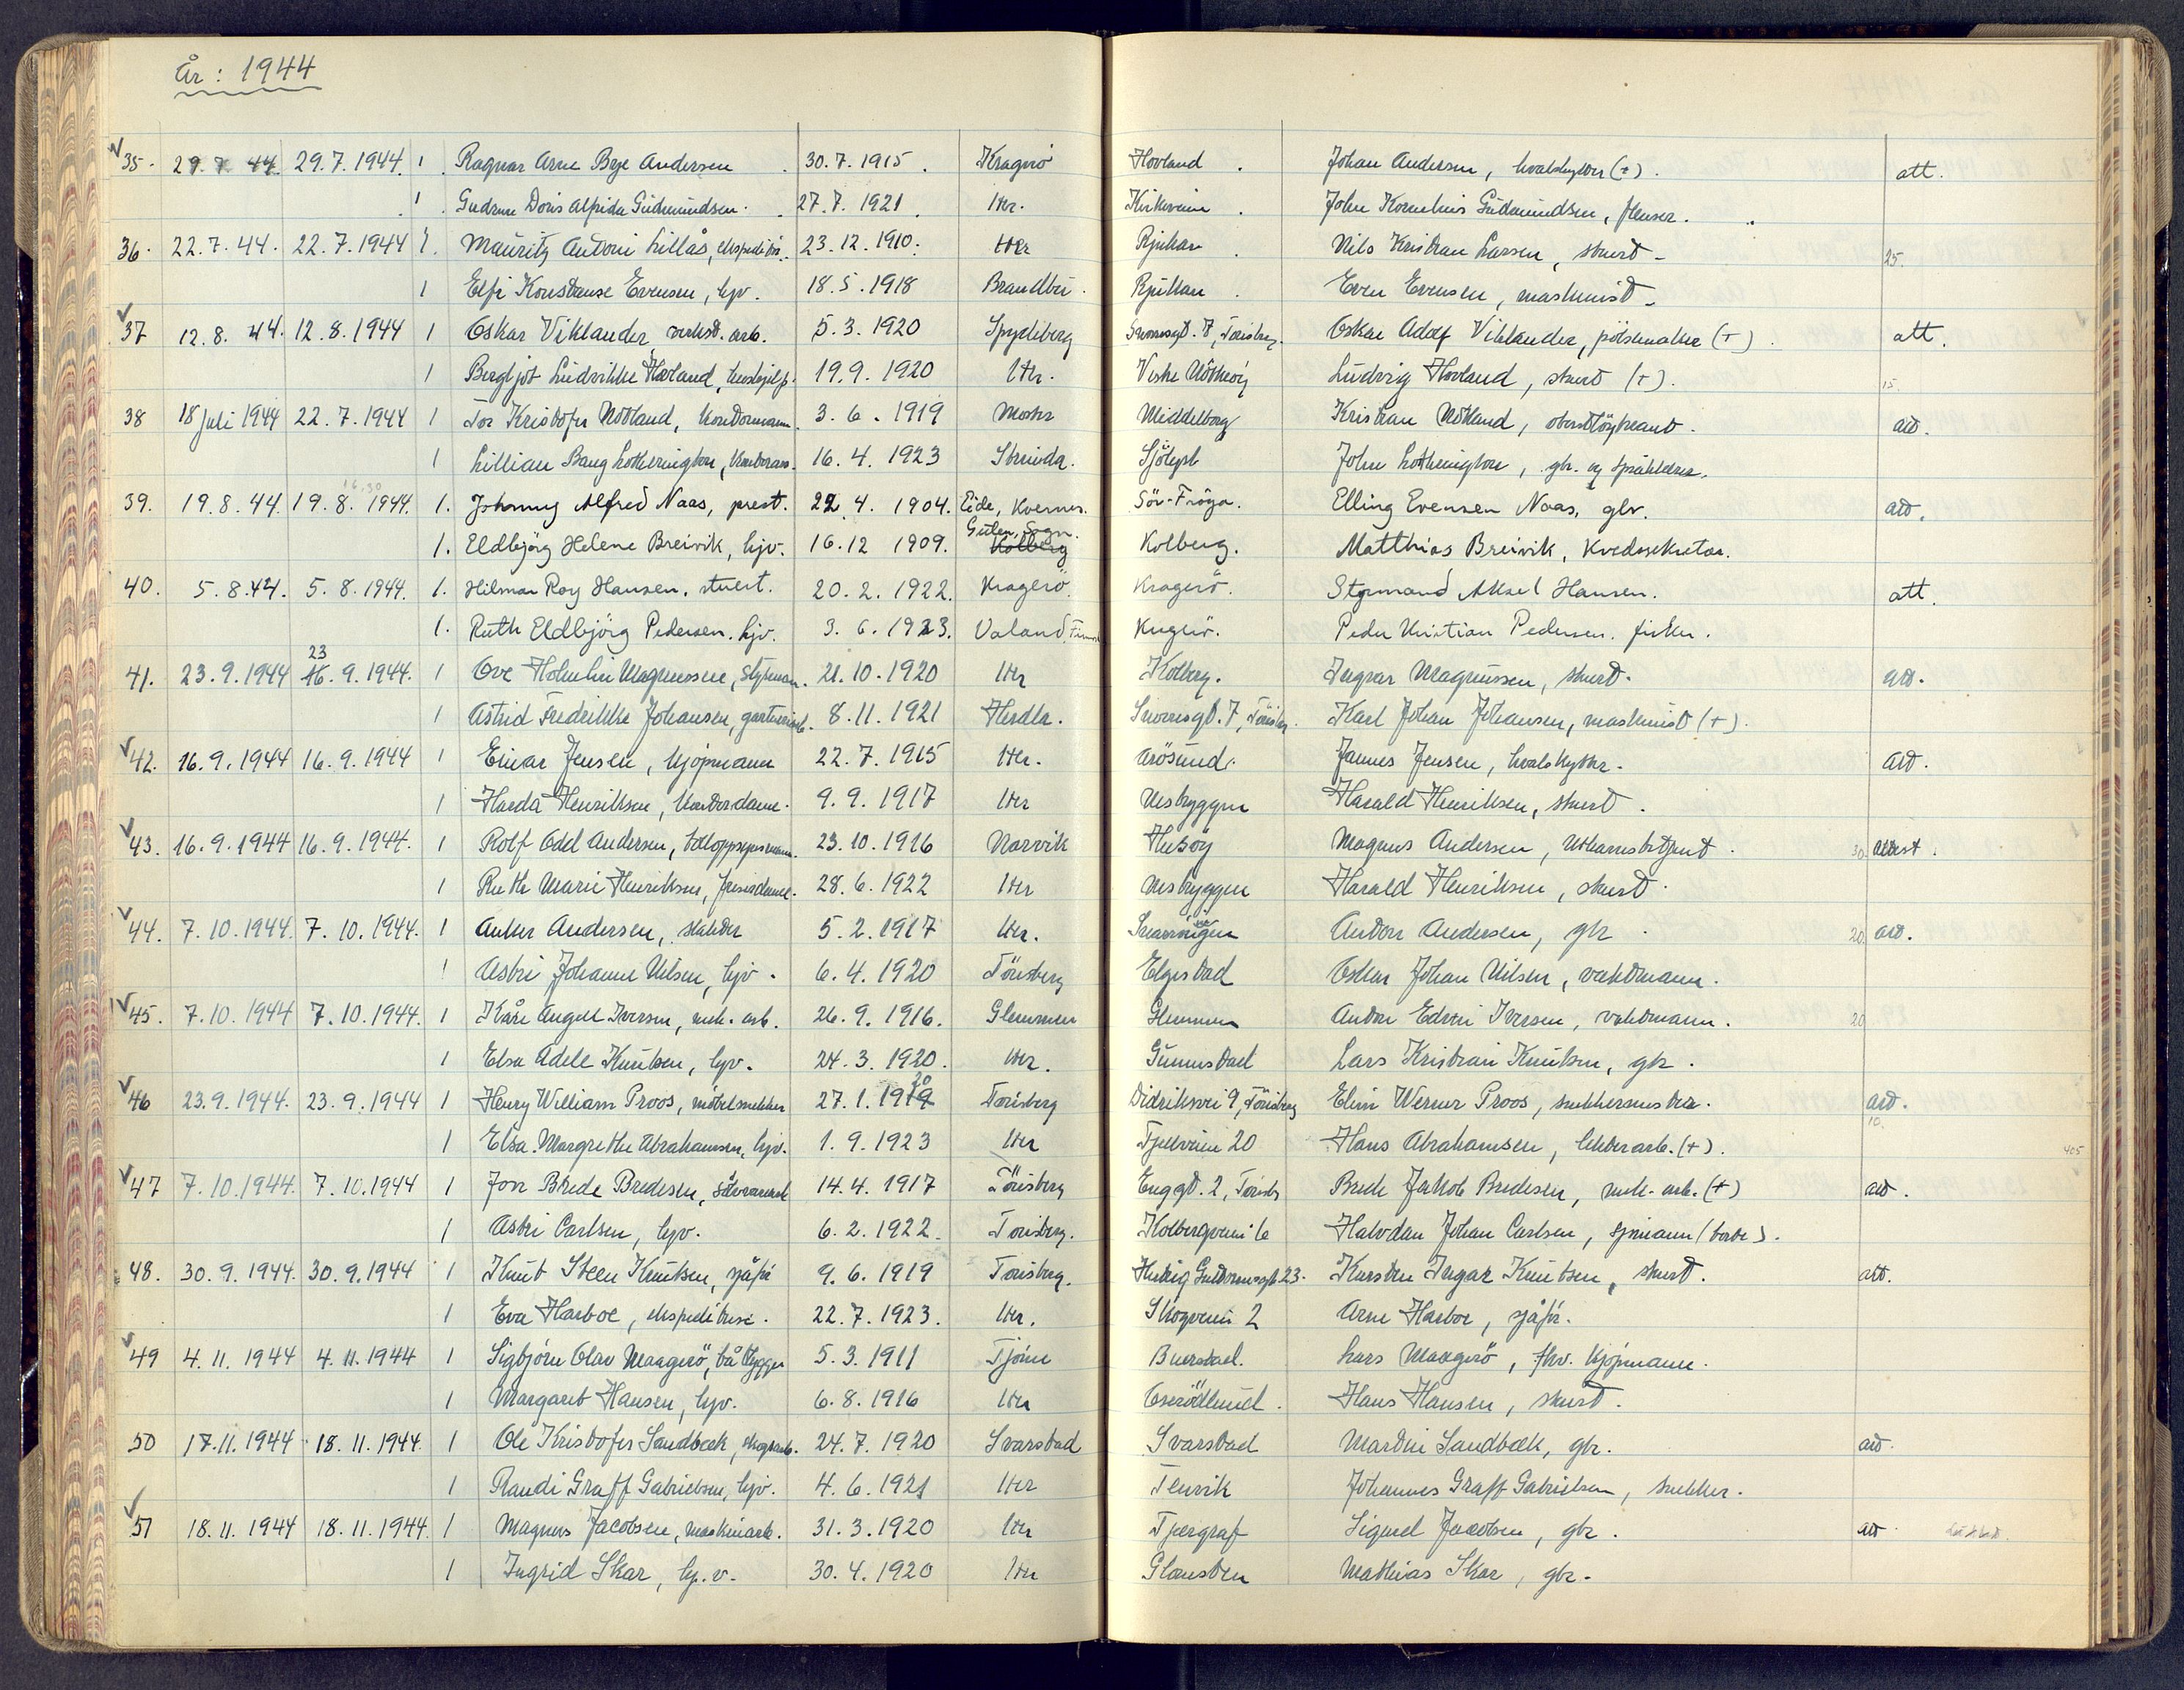 År: 1944
35. 29.7.44. 29.7.1944. 1 Ragnar Arne Bye Andersen 30.7.1915. Kragerö Hovland Johan Andersen, hvalskytter (+). att.
1 Gudrun Doris Alfrida Gudmundsen. 27.7.1921. Her. Kirkeveien John Kornelius Gudmundsen,
36. 22.7.44. 22.7.1944 1. Mauritz Antoni Lillås, 23.12.1910. Her Rjukan Nils Kristian Larsen, stuert. 25.
1 Elfi Konstanse Evensen, hjv. 18.5.1918 Brandbu. Rjukan Even Evensen, maskinist.
37 12.8.44. 12.8.1944 1 Oskar Viklander, verkst. arb. 5.3.1920 Spydeberg Tönsberg. Oskar Adolf Viklander, pölsemaker (+). att.
1 Bergljot Ludvikke Hovland, 19.9.1920 Her. Vestre Nötteröy Ludvig Hovland, stuert (+). 15.
38 18 juli 1944 22.7.1944 1 Tor Kristofer Nötland, kontormann. 3.6.1919 Middelborg Kristian Nötland, oberstlöytnant. att.
1 Lillian Bang Lotherington, 16.4.1923 Strinda. John Lotherington, gbr. og
39. 19.8.44. 19.8.1944. 16.30 1. Johannes Alfred Naas, prest. 22.4.1904. Eide, Kvernes. Sör-Fröya. Elling Evensen Naas, gbr. att.
1. Eldbjörg Helene Breivik, hjv. 16.12 1909. Gulen, Sogn. Kolberg Kolberg. Matthias Breivik, Kredssekretær.
40. 5.8.44. 5.8.1944. 1. Hilmar Roy Hansen, stuert. 20.2.1922. Kragerö. Kragerö. Styrmand Aksel Hansen. att.
1. Ruth Eldbjörg Pedersen. hjv. 3.6.1923. Kragerö. Peder Kristian Pedersen. fisker.
41. 23.9.1944 23 16.9.1944. 1 Ove Holmlin Magnussen, styrmann. 21.10.1920 Her Kolberg. Ingvar Magnussen, stuert. att.
1 Astrid Fredrikke Johansen, 8.11.1921 Herdla. Karl Johan Johansen, maskinist (+).
42. 16.9.1944 16.9.1944 1 Einar Jensen, kjöpmann 22.7.1915 Her. Årösund. Jannes Jensen, hvalskytter. att.
1 Harda Henriksen, kontordame. 9.9.1917 Her Nesbryggen Harald Henriksen, stuert.
43. 16.9.1944 16.9.1944. 1 Rolf Odd Andersen, 23.10.1916 Narvik Husöy Magnus Andersen, 30.
1 Ruth Marie Henriksen, frisördame. 28.6.1922 Her Nesbryggen Harald Henriksen, stuert.
44. 7.10.1944. 7.10.1944. 1 Anker Andersen, 5.2.1917 Her. Anton Andersen, gbr. 20. att.
1 Astri Johanne Nilsen, hjv. 6.4.1920 Tönsberg Elgestad Oskar Johan Nilsen, vaktmann.
45. 7.10.1944 7.10.1944. 1 Kåre Angell Iversen, mek. arb. 26.9.1916. Glemmen Glemmen Anton Edvin Iversen, vaktmann. 20
1 Elsa Adele Knutsen, hjv. 24.3.1920. Her. Gunnestad Lars Kristian Knutsen, gbr.
46 23.9.1944. 23.9.1944 1 Henry William Proos, möbelsnekker 27.1.1919 20 Tönsberg Didriksvei 9, Tönsberg Elim Werner Proos, snekkermester. att. 10.
1 Elsa Margrethe Abrahamsen, hjv. 1.9.1923 Her Tjelleveien 20 Hans Abrahamsen, (+). 405
47 7.10.1944. 7.10.1944 1 Jon Brede Bredesen, 14.4.1917 Tönsberg Enggt. 2, Tönsb. Brede Jakob Bredesen, mek. arb. (+) att.
1 Astri Carlsen, hjv. 6.2.1922. Tönsberg. Kolbergveien 6 Halvdan Johan Carlsen, sjömann (borte).
48. 30.9.1944. 30.9.1944 1 Knut Steen Knutsen, sjåför 9.6.1919 Tönsberg. 23. Karsten Ingar Knutsen, stuert. att.
1 Eva Harboe, ekspeditrise. 22.7.1923. Her. Skogveien 2 Arne Harboe, sjåför.
49 4.11.1944 4.11.1944 1 Sigbjörn Olav Maagerö, båtbygger 5.3.1911 Tjöme Buerstad. Lars Maagerö, fhv. kjöpmann.
1 Margaret Hansen, hjv. 6.8.1916 Her Oserödlund. Hans Hansen, stuert.
50 17.11.1944 18.11.1944. 1 Ole Kristofer Sandbæk, skogsarb. 24.7.1920 Svarstad Svarstad Martin Sandbæk, gbr. att.
1 Randi Graff Gabrielsen, hjv. 4.6.1921 Her Tenvik Johannes Graff Gabrielsen, snekker.
51 18.11.1944 18.11.1944. 1 Magnus Jacobsen, maskinarb. 31.3.1920 Her Sigurd Jacobsen, gbr. att
1 Ingrid Skar, hj.v. 30.4.1920 Her Glomsten Mathias Skar, gbr.